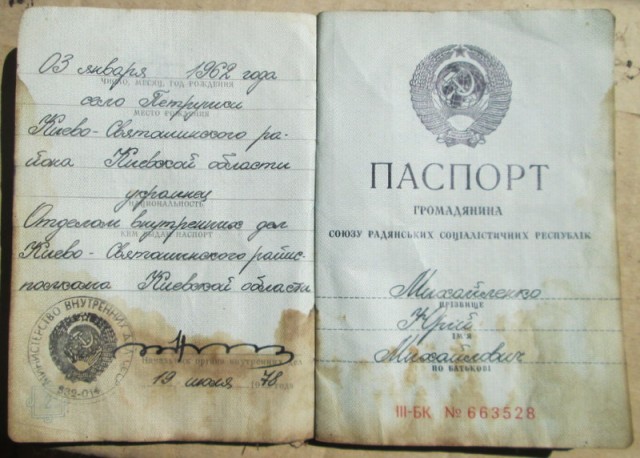 03 января 1962 года
число, месяц, год рождения
село Петрушки
место рождения
Киево-Святошинского ра-
йона Киевской области
украинец
национальность
Отделом внутренних дел
кем выдан паспорт
Киево-Святошинского райис-
полкома Киевской области
МИНИСТЕРСТВО ВНУТРЕННИХ ДЕЛ СССР
Начальник органа внутренних дел
19 июля 1978 года
ПАСПОРТ
ГРОМАДЯНИНА
СОЮЗУ РАДЯНСЬКИХ СОЦІАЛІСТИЧНИХ РЕСПУБЛІК
Михайленко
прізвище
Юрій
ім'я
Михайлович
по батькові
III-БК № 663528